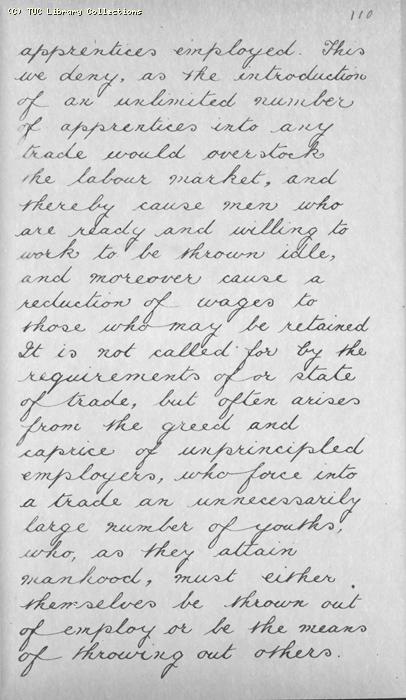 (C) TUC Library Collections
110
apprentices employed. This
we deny, as the introduction
of an unlimited number
of apprentices into any
trade would overstock
the labour market, and
thereby cause men who
are ready and willing to
work to be thrown idle,
and moreover cause a
reduction of wages to
those who may be retained
It is not called for by the
requirements of or state
of trade, but often arises
from the greed and
caprice of unprincipled
employers, who force into
a trade an unnecessarily
large number of youths,
who, as they attain
manhood, must either
themselves be thrown out
of employ or be the means
of throwing out others.